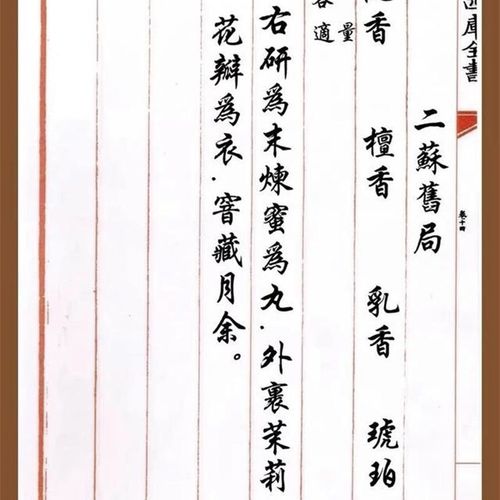 庫全書
卷十四
二蘇舊局
香 檀香 乳香 琥珀
適量
右研為末煉蜜為丸.外裹茉莉
花瓣為衣.窨藏月余。